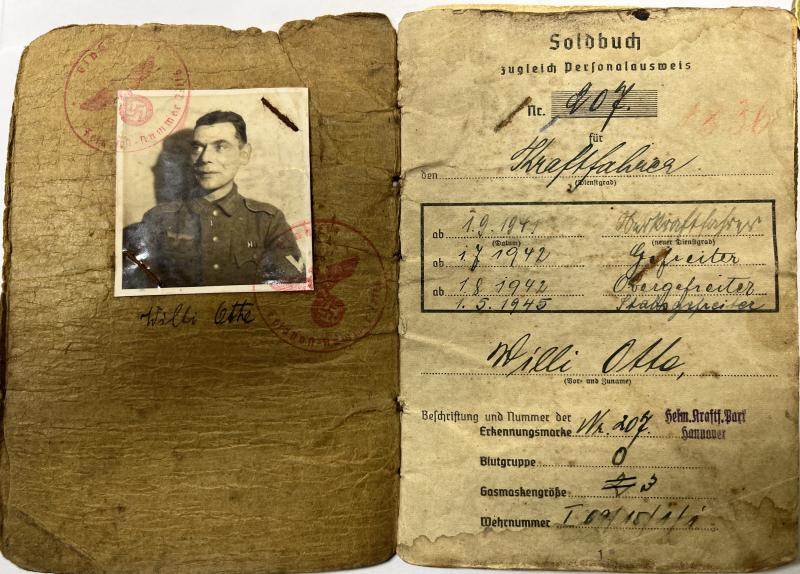 Feldpost-Nummer
Willi Otte
Soldbuch
zugleich Personalausweis
Nr. 207.
für
den Kraftfahrer
(Dienstgrad)
ab 1.9.1941
(Datum) (neuer Dienstgrad)
ab 1.7 1942 Gefreiter
ab 1.8 1942 Obergefreiter
1.5.1945 Stabsgefreiter
Willi Otte,
(Vor- und Zuname)
Beschriftung und Nummer der
Erkennungsmarke Nr. 207. Heim.Kraftf.Park
Hannover
Blutgruppe O
Gasmaskengröße 3
Wehrnummer
1